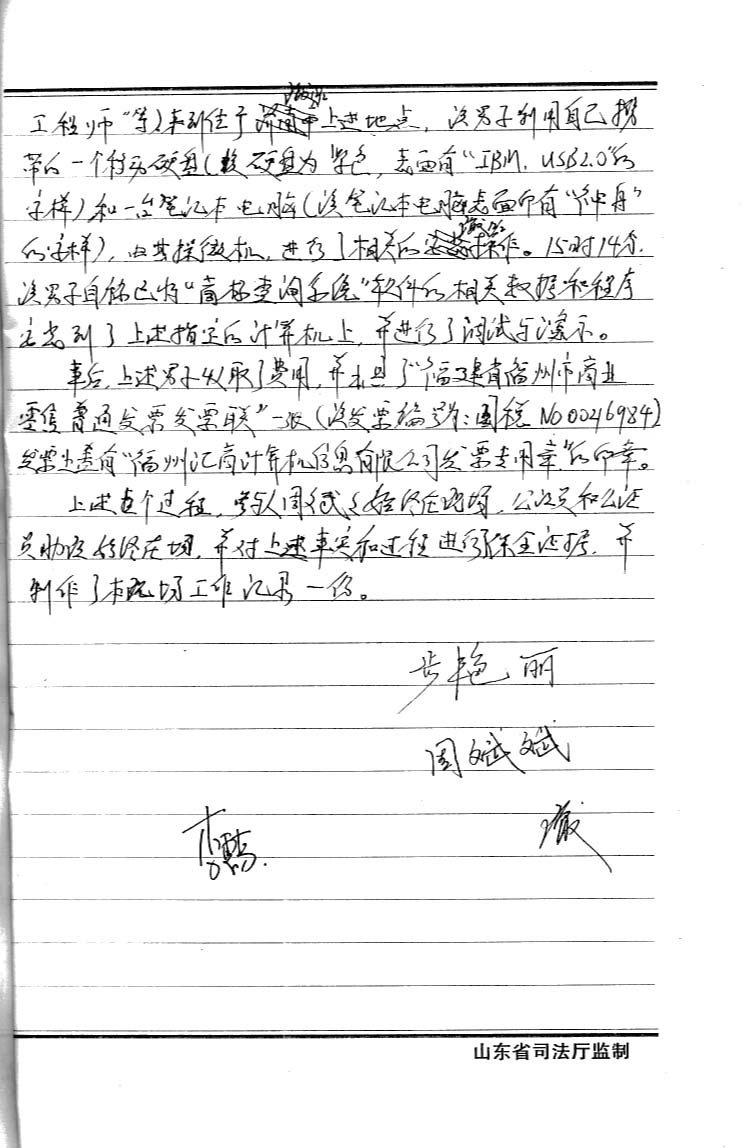 工程师"等)来到位于上述地点，该男子利用自己携
带的一个移动硬盘(该硬盘为黑色，表面有"IBM，USB2.0"的
字样)和一台笔记本电脑(该笔记本电脑表面印有"神舟"
的字样)，由其操微机，进行了相关的操作。15时14分，
该男子自称已将"商标查询系统"软件的相关数据和程序
安装到了上述指定的计算机上，并进行了调试与演示。
事后，上述男子收取了费用，并出具了"福建省福州市商业
零售普通发票发票联"一张(该发票编号为：国税 No 0046984)
发票上盖有"福州汇商计算机信息有限公司发票专用章"的印章。
上述整个过程，参与人周斌斌始终在现场，公证员和公证
员助理始终在场，并对上述事实和过程进行保全证据，并
制作了本现场工作记录一份。
步艳丽
周斌斌
山东省司法厅监制